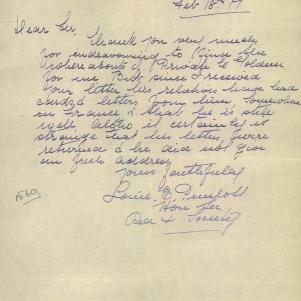 Feb 18. 17
Dear Sir,
Thank you very much
for endeavouring to find the
whereabouts of Private Golden
for me. But since I received
your letter his relatives have had
cards & letters from him, somewhere
in France & that he is still
well. Altho it certainly is
strange that his letters were
returned & he did not give
an fresh address
Yours faithfully
Louise E
Hon Sec
Red X Society
1660.